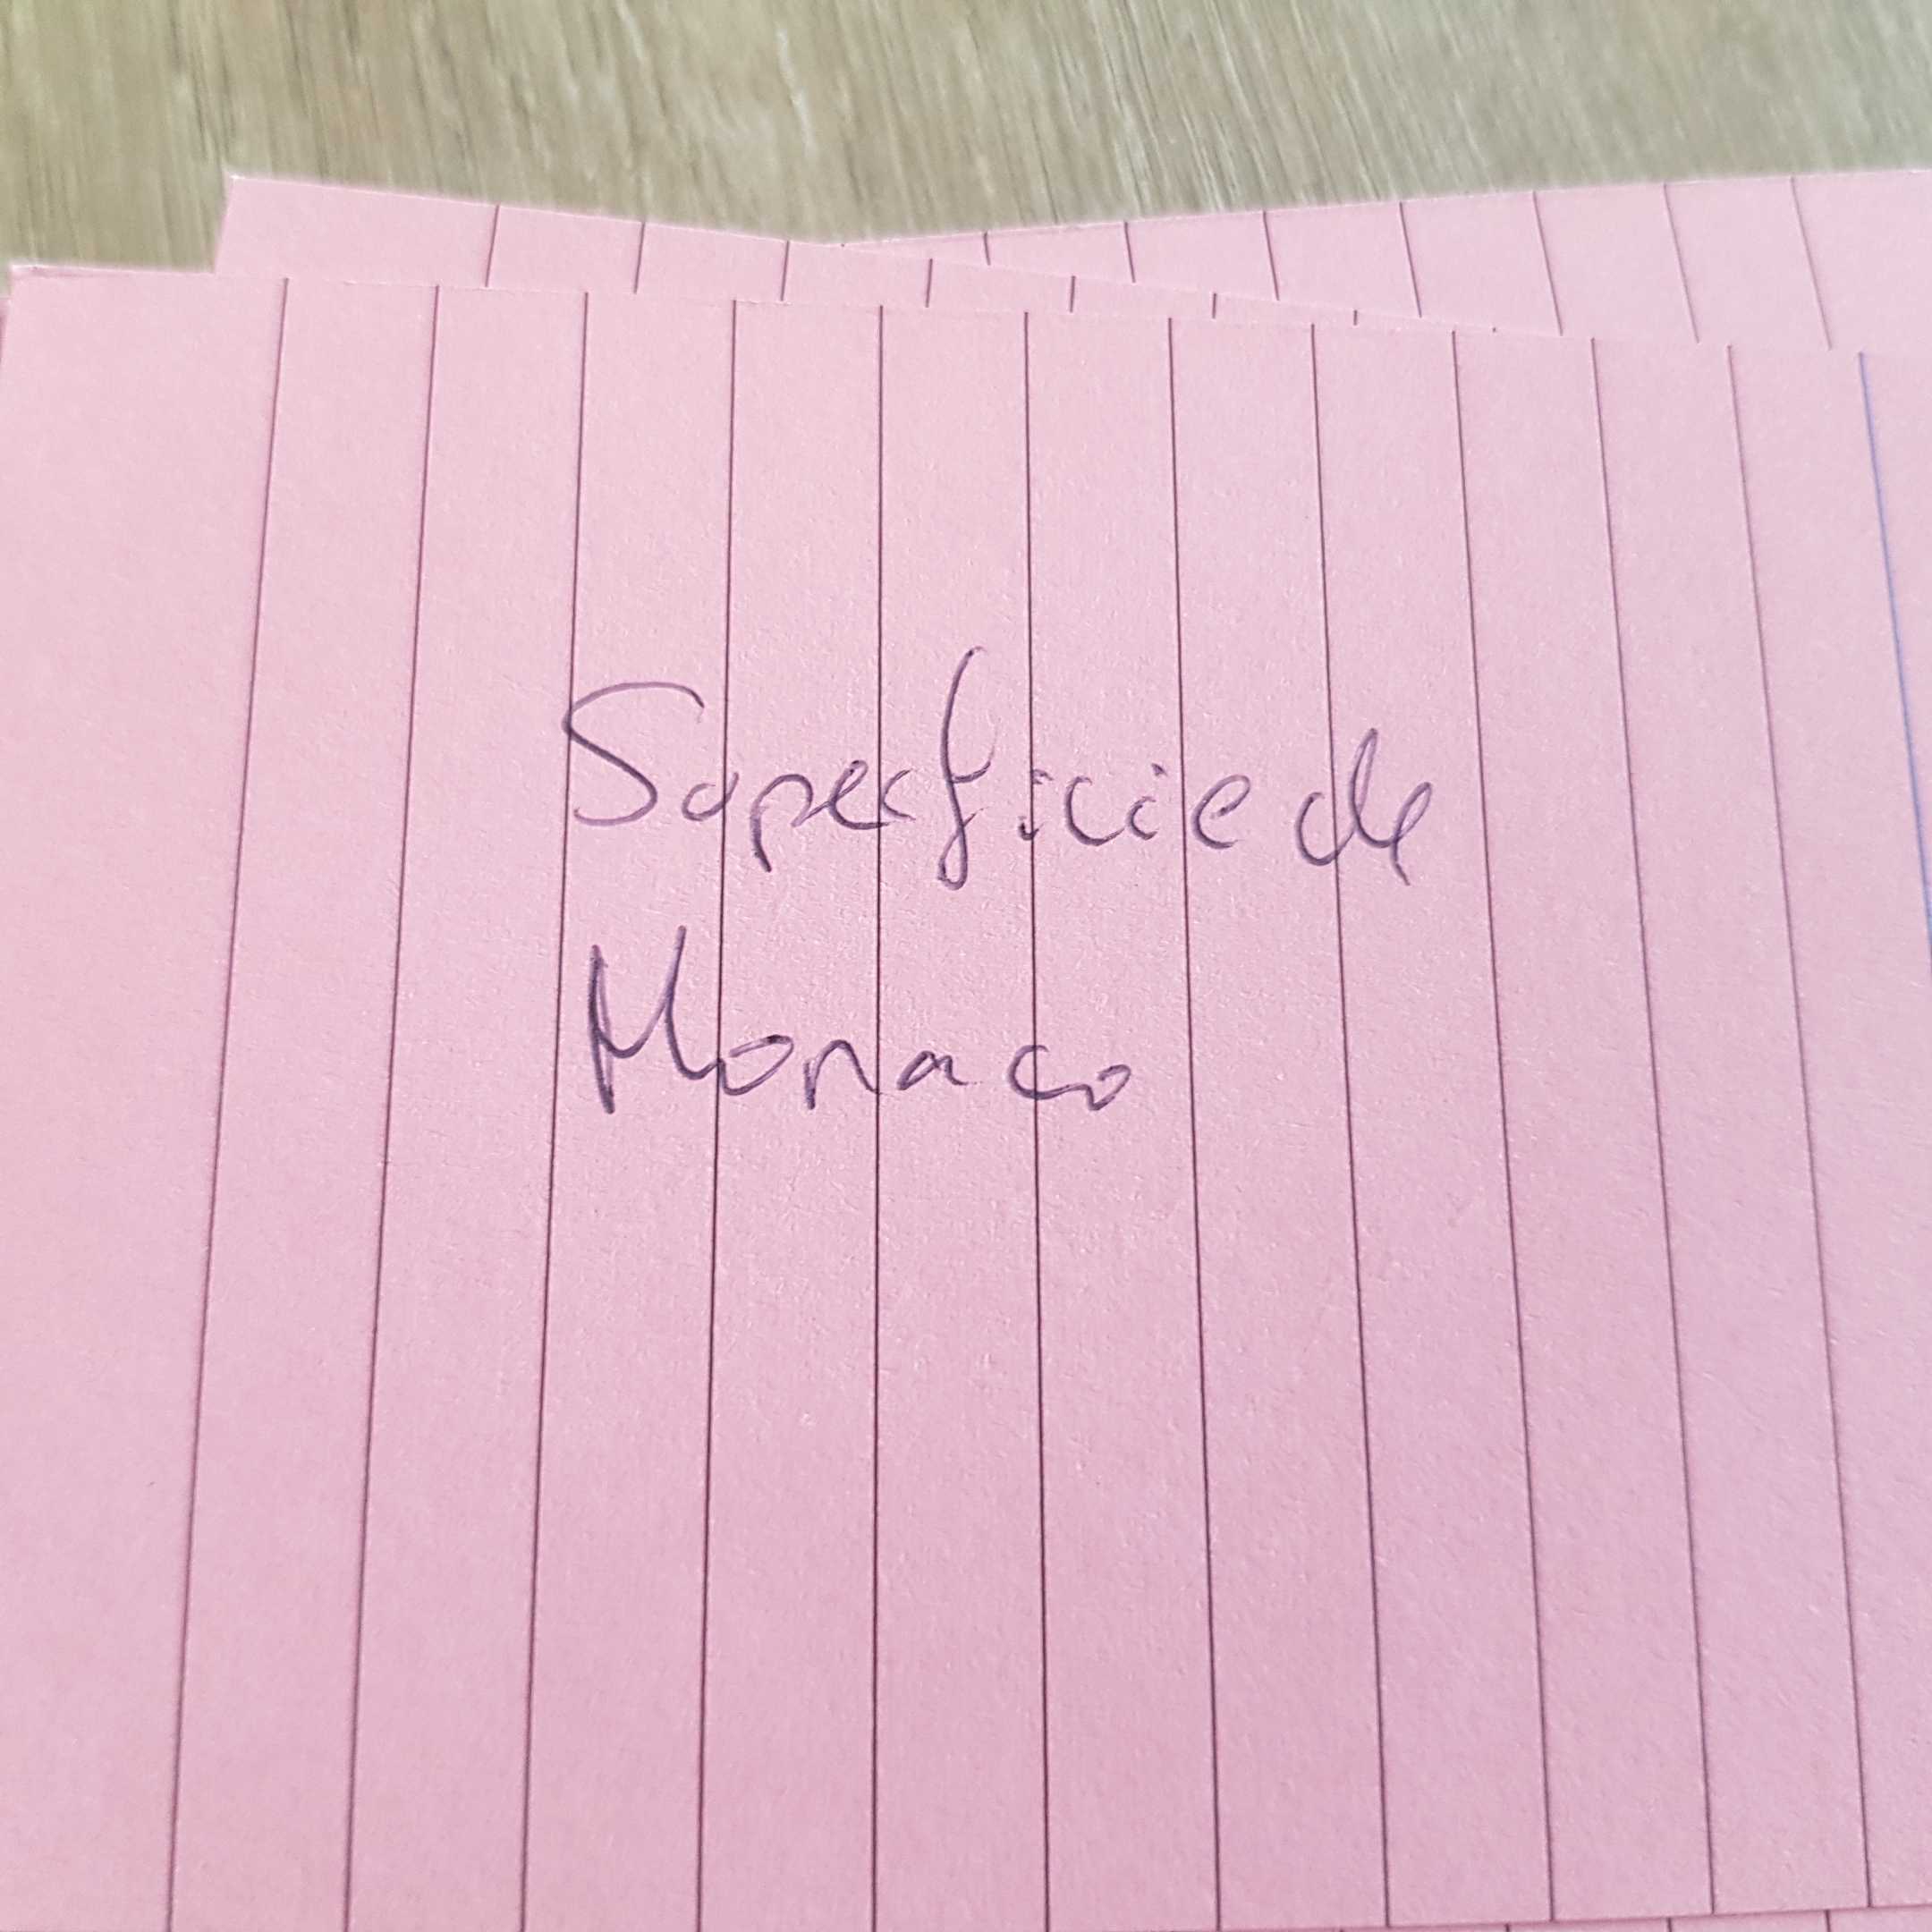 Superficie de
Monaco